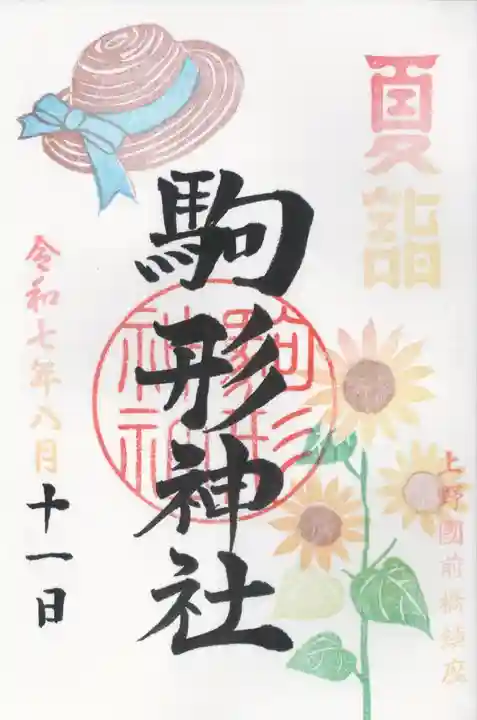 夏詣
上野國前橋鎮座
駒形神社
駒形
神社
令和七年八月
十一日